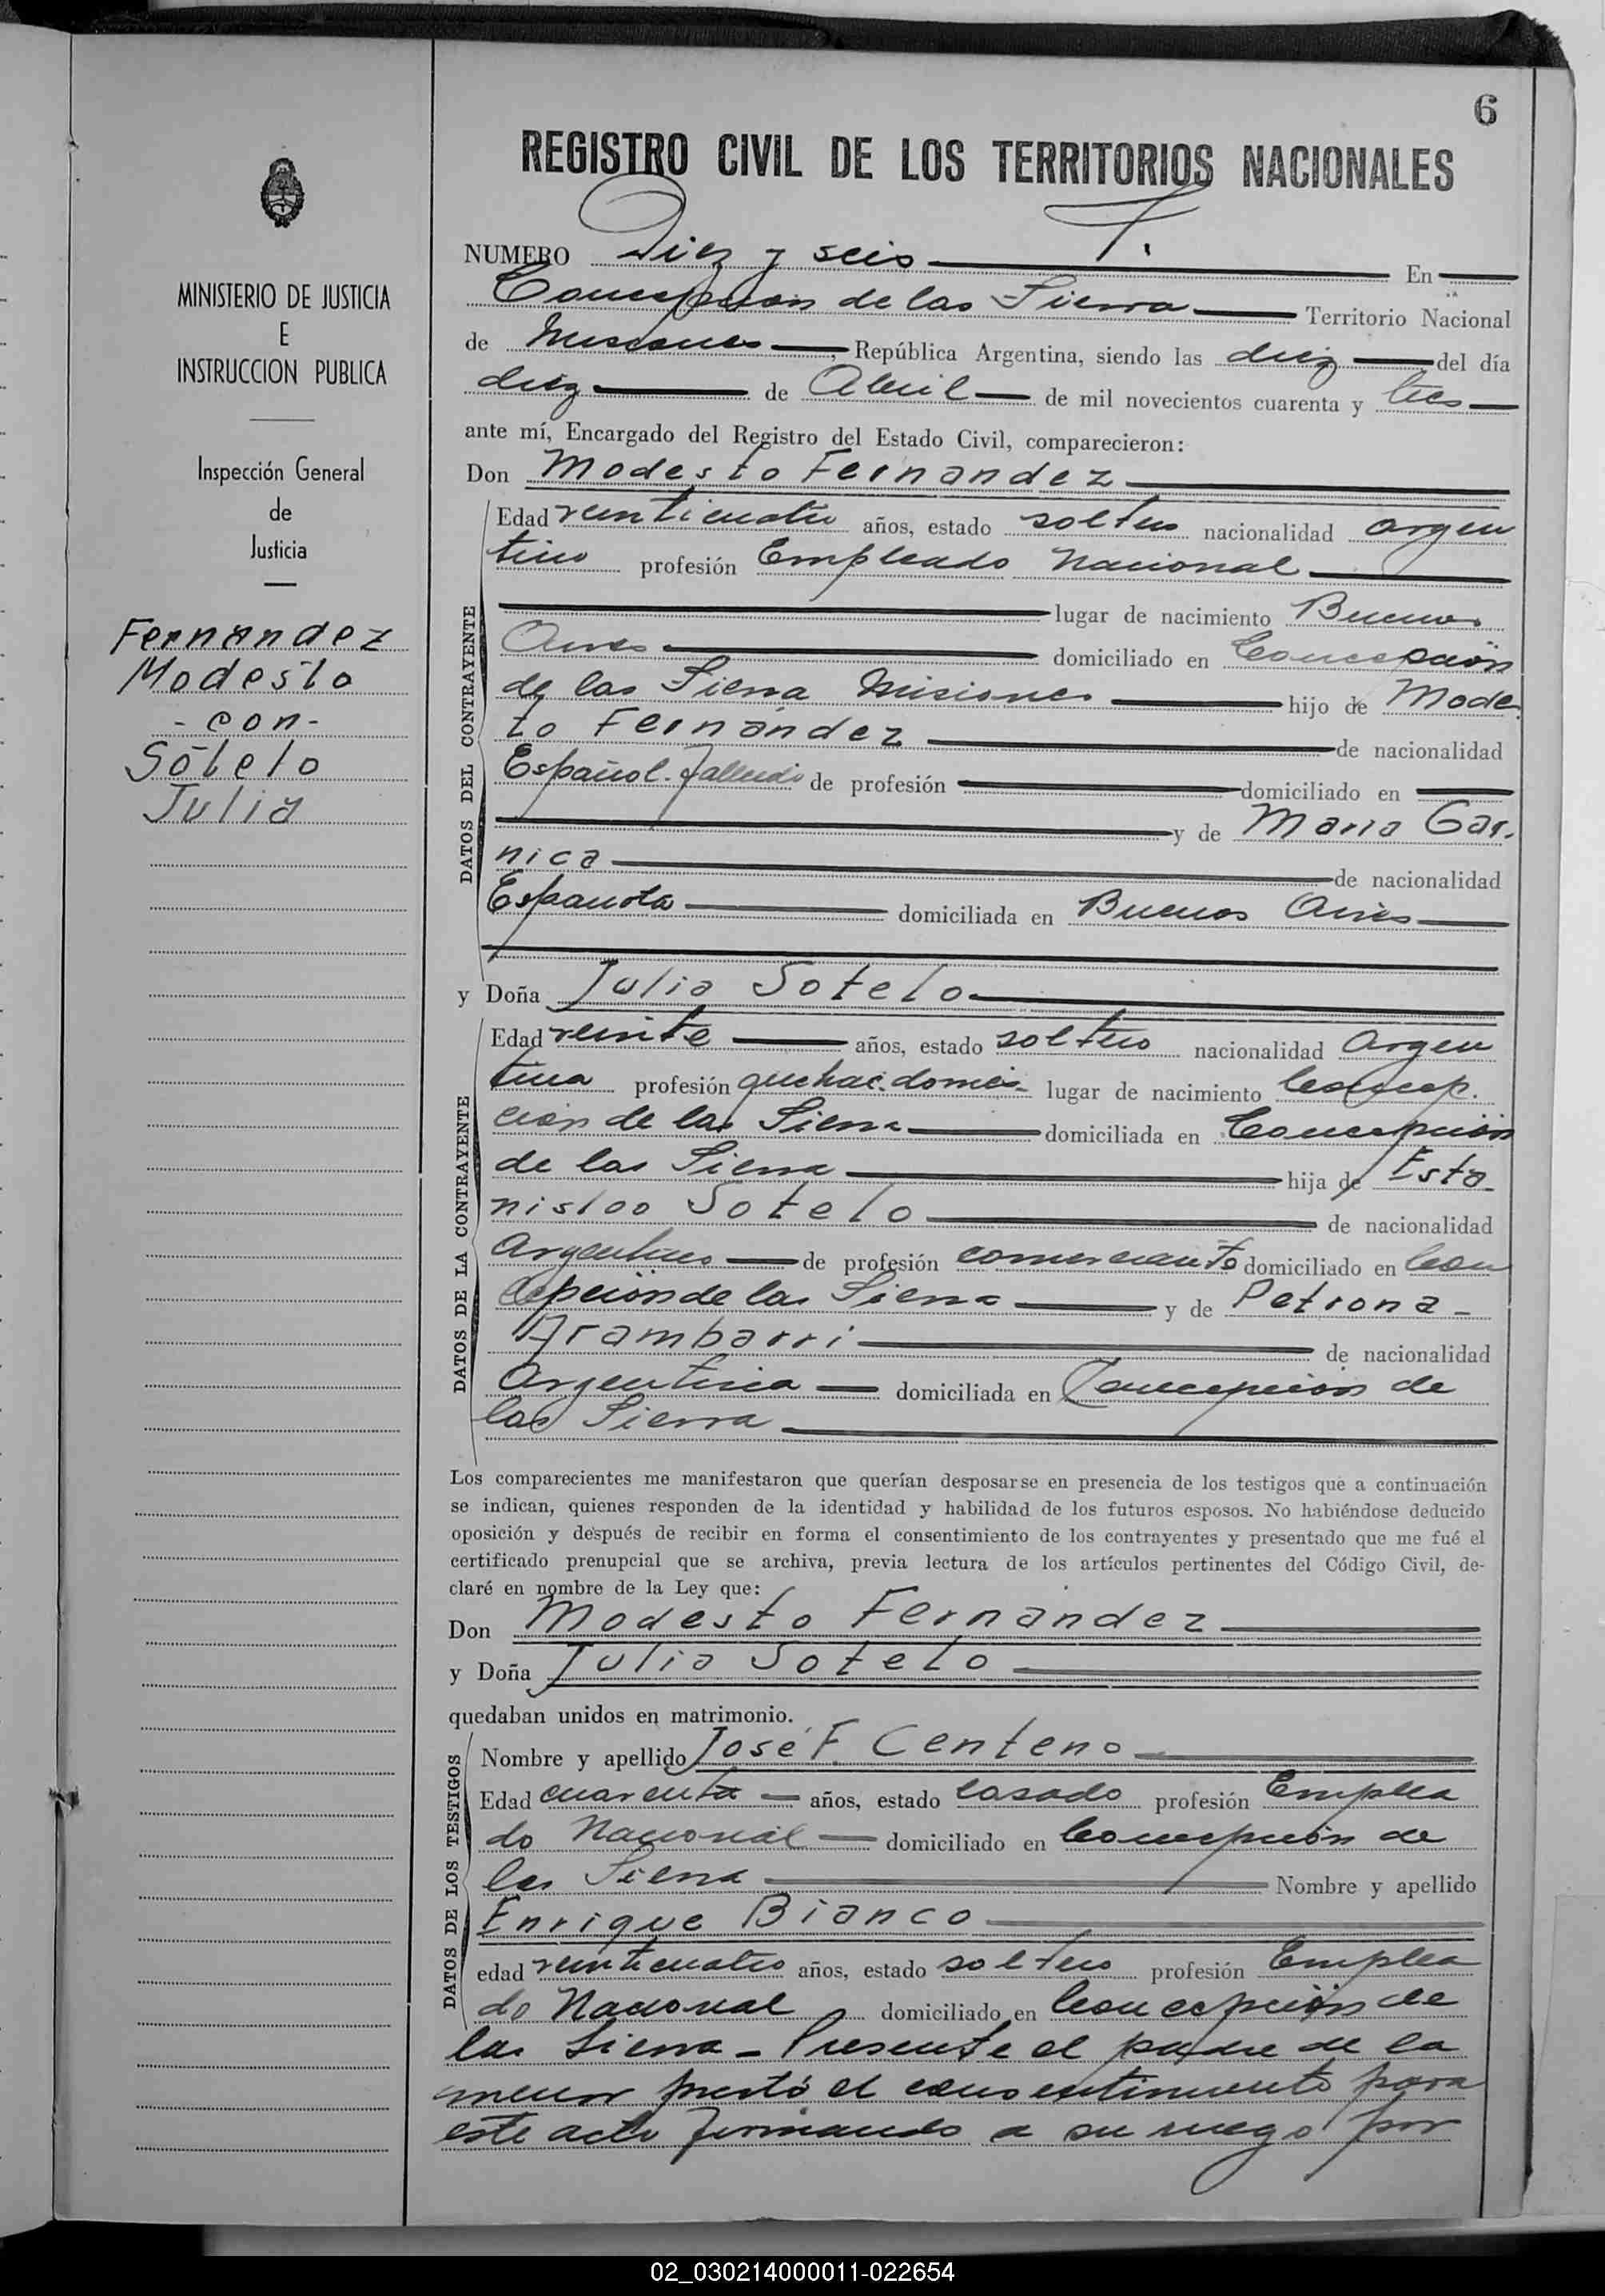 6
REGISTRO CIVIL DE LOS TERRITORIOS NACIONALES
MINISTERIO DE JUSTICIA
E
INSTRUCCION PUBLICA
Inspección General
de
Justicia
Fernandez
Modesto
- con -
Sótelo
Julia
NUMERO Diez y seis En
Concepcion de las Sierra Territorio Nacional
de Misiones, República Argentina, siendo las diez del día
diez de Abril de mil novecientos cuarenta y tres
ante mí, Encargado del Registro del Estado Civil, comparecieron:
Don Modesto Fernandez
DATOS DEL CONTRAYENTE
Edad veinticuatro años, estado soltero nacionalidad argen
tino profesión Empleado Nacional
lugar de nacimiento Buenos
Aires domiciliado en Concepción
de las Sierra Misiones hijo de Mode
to Fernández de nacionalidad
Español. fallecido de profesión domiciliado en
y de Maria Gar.
nica de nacionalidad
Española domiciliada en Buenos Aires
y Doña Julia Sotelo
DATOS DE LA CONTRAYENTE
Edad veinte años, estado soltera nacionalidad Argen
tina profesión quehac. domés lugar de nacimiento Concep.
ción de las Sierra domiciliada en Concepción
de las Sierra hija de Esta
nisloo Sotelo de nacionalidad
Argentino de profesión comerciante domiciliado en Con
cepción de las Sierra y de Petrona -
Arambarri de nacionalidad
Argentina domiciliada en Concepción de
las Sierra
Los comparecientes me manifestaron que querían desposarse en presencia de los testigos que a continuación
se indican, quienes responden de la identidad y habilidad de los futuros esposos. No habiéndose deducido
oposición y después de recibir en forma el consentimiento de los contrayentes y presentado que me fué el
certificado prenupcial que se archiva, previa lectura de los artículos pertinentes del Código Civil, de-
claré en nombre de la Ley que:
Don Modesto Fernandez
y Doña Julia Sotelo
quedaban unidos en matrimonio.
DATOS DE LOS TESTIGOS
Nombre y apellido José F. Centeno
Edad cuarenta años, estado casado profesión Emplea
do Nacional domiciliado en Concepción de
las Sierra Nombre y apellido
Enrique Bianco
edad veinticuatro años, estado soltero profesión Emplea
do Nacional domiciliado en Concepción de
las Sierra - Presente el padre de la
menor prestó el consentimiento para
este acto firmando a su ruego por
02_030214000011-022654